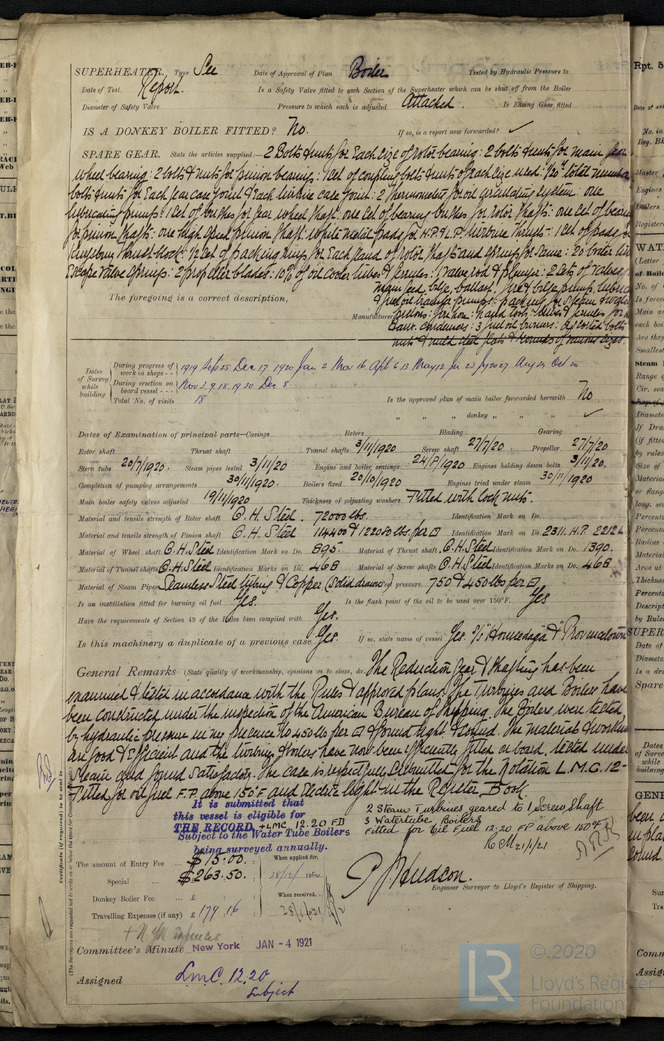 SUPERHEATER. Type See Date of Approval of Plan Boiler Tested by Hydraulic Pressure to
Date of Test Report. Is a Safety Valve fitted to each Section of the Superheater which can be shut off from the Boiler
Diameter of Safety Valve Pressure to which each is adjusted Attached. Is Easing Gear fitted
IS A DONKEY BOILER FITTED? No. If so, is a report now forwarded? ✓
SPARE GEAR. State the articles supplied:— 2 Bolts & nuts for each size of rotor bearing: 2 bolts & nuts for main gear
wheel bearing: 2 bolts & nuts for pinion bearings: 1 set of coupling bolts & nuts of each size used: 1/20th total number
bolts & nuts for each gear case joint & each turbine case joint: 2 thermometers for oil circulating system: one
lubricating pump: 1 set of bushes for gear wheel shaft: one set of bearing bushes for rotor shafts: one set of bearing
for pinion shaft: one high speed pinion shaft: white metal pads for H.P. & L.P. turbine thrusts: 1 set of pads for
Kingsbury thrust block: 1/2 set of packing rings for each gland of rotor shafts and springs for same: 20 boiler tubes
Escape valve springs: 2 propeller blades: 10% of oil cooler tubes & ferrules: 1 water rod & plunger: 2 sets of valves
main feed, bilge, ballast, fire & bilge pump,
& fuel oil transfer pumps:
The foregoing is a correct description,
Manufacturer
Condensers: 3 fuel oil burners: Assorted bolts
nuts & mild steel flats & rounds of various sizes
Dates of Survey while building
During progress of work in shops - - 1919 Sep 25 Dec 17, 1920 Jan 2 Mar 16 Apl 6.13 May 12 Jun 23 Jy 20.27 Aug 24 Oct 20
During erection on board vessel - - - Nov 3.9.18.19.30 Dec 8
Total No. of visits 18
Is the approved plan of main boiler forwarded herewith No
" " " donkey " " ✓
Dates of Examination of principal parts—Casings Rotors Blading Gearing
Rotor shaft Thrust shaft Tunnel shafts 3/11/1920 Screw shaft 27/7/20 Propeller 27/7/20
Stern tube 20/7/1920. Steam pipes tested 3/11/20 Engine and boiler seatings 24/8/1920 Engines holding down bolts 3/11/20.
Completion of pumping arrangements 30/11/1920 Boilers fixed 20/10/1920 Engines tried under steam 30/11/1920
Main boiler safety valves adjusted 19/11/1920 Thickness of adjusting washers Fitted with lock nuts.
Material and tensile strength of Rotor shaft O.H. Steel. 72000 lbs. Identification Mark on Do.
Material and tensile strength of Pinion shaft O.H. Steel 114400 & 122080 lbs. per □" Identification Mark on Do. 2311. H.P. 2212 L
Material of Wheel shaft O.H. Steel Identification Mark on Do. 895. Material of Thrust shaft O.H. Steel Identification Mark on Do. 1390.
Material of Tunnel shafts O.H. Steel Identification Marks on Do. 468 Material of Screw shafts O.H. Steel Identification Marks on Do. 468
Material of Steam Pipes Seamless Steel tubing & Copper (solid drawn) Test pressure 750 & 450 lbs per □"
Is an installation fitted for burning oil fuel Yes. Is the flash point of the oil to be used over 150°F. Yes
Have the requirements of Section 49 of the Rules been complied with Yes.
Is this machinery a duplicate of a previous case Yes. If so, state name of vessel Yes S/S "Homestead" &
General Remarks (State quality of workmanship, opinions as to class, &c. The Reduction Gear & Shafting has been
examined & tested in accordance with the Rules & approved plans. The Turbines and Boilers have
been constructed under the inspection of the American Bureau of Shipping. The Boilers were tested
by hydraulic pressure in my presence to 450 lbs per □" & found tight & sound. The materials & workmanship
are good & efficient and the turbines & boilers have now been efficiently fitted on board, tested under
Steam and found satisfactory. The case is respectfully submitted for the notation L.M.C. 12-
Fitted for oil fuel F.P. above 150°F and Electric light in the Register Book.
It is submitted that
this vessel is eligible for
THE RECORD. + LMC 12.20 FD
Subject to the Water Tube Boilers
being surveyed annually.
2 Steam Turbines geared to 1 Screw Shaft
3 Watertube Boilers
Fitted for Oil Fuel 12.20 FP above 150°F
21/1/21
The amount of Entry Fee .. $ 15.00 : When applied for,
Special ... .. $ 263.50 :
Donkey Boiler Fee ... .. £ : : When received,
Travelling Expenses (if any) £ 174.16 :
P. J. Hudson.
Engineer Surveyor to Lloyd's Register of Shipping.
Committee's Minute New York JAN - 4 1921
Assigned L.M.C. 12.20
Subject
Certificate (if required) to be sent to
LR ©2020
Lloyd's Register
Foundation
Rpt. 5